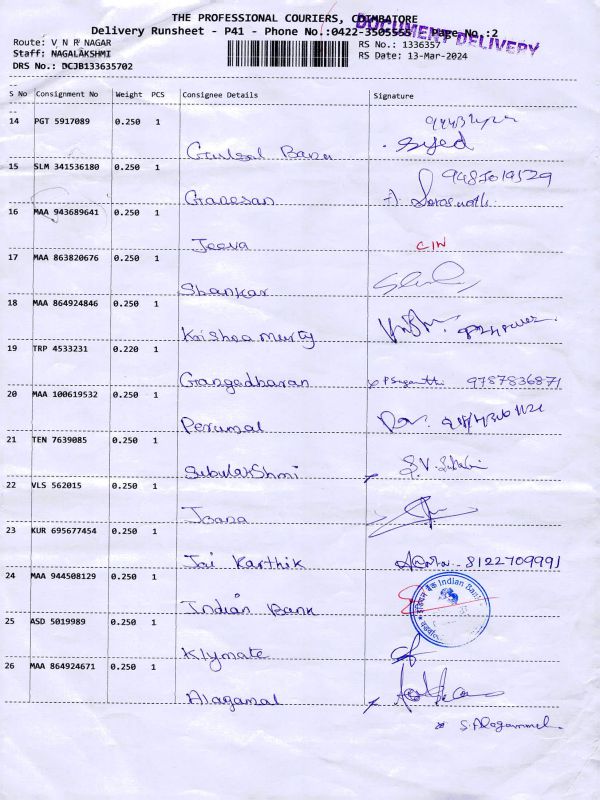 THE PROFESSIONAL COURIERS, COIMBATORE
DOCUMENT DELIVERY
Delivery Runsheet - P41 - Phone No.:0422-3505555 Page No.:2
Route: V N R NAGAR
RS No.: 1336357
Staff: NAGALAKSHMI
RS Date: 13-Mar-2024
DRS No.: DCJB133635702
S No Consignment No Weight PCS Consignee Details Signature
14 PGT 5917089 0.250 1
Syed
15 SLM 341536180 0.250 1
9487019529
Ganesan
16 MAA 943689641 0.250 1
Jeeva
17 MAA 863820676 0.250 1
Shankar
18 MAA 864924846 0.250 1
Krishna Murty
19 TRP 4533231 0.220 1
Gangadharan 9787836871
20 MAA 100619532 0.250 1
Perumal
21 TEN 7639085 0.250 1
Subulakshmi
22 VLS 562015 0.250 1
Joana
23 KUR 695677454 0.250 1
Jai Karthik 8122709991
24 MAA 944508129 0.250 1
Indian Bank
Indian Bank
25 ASD 5019989 0.250 1
Klymate
26 MAA 864924671 0.250 1
Alagamal
S. Alagammal